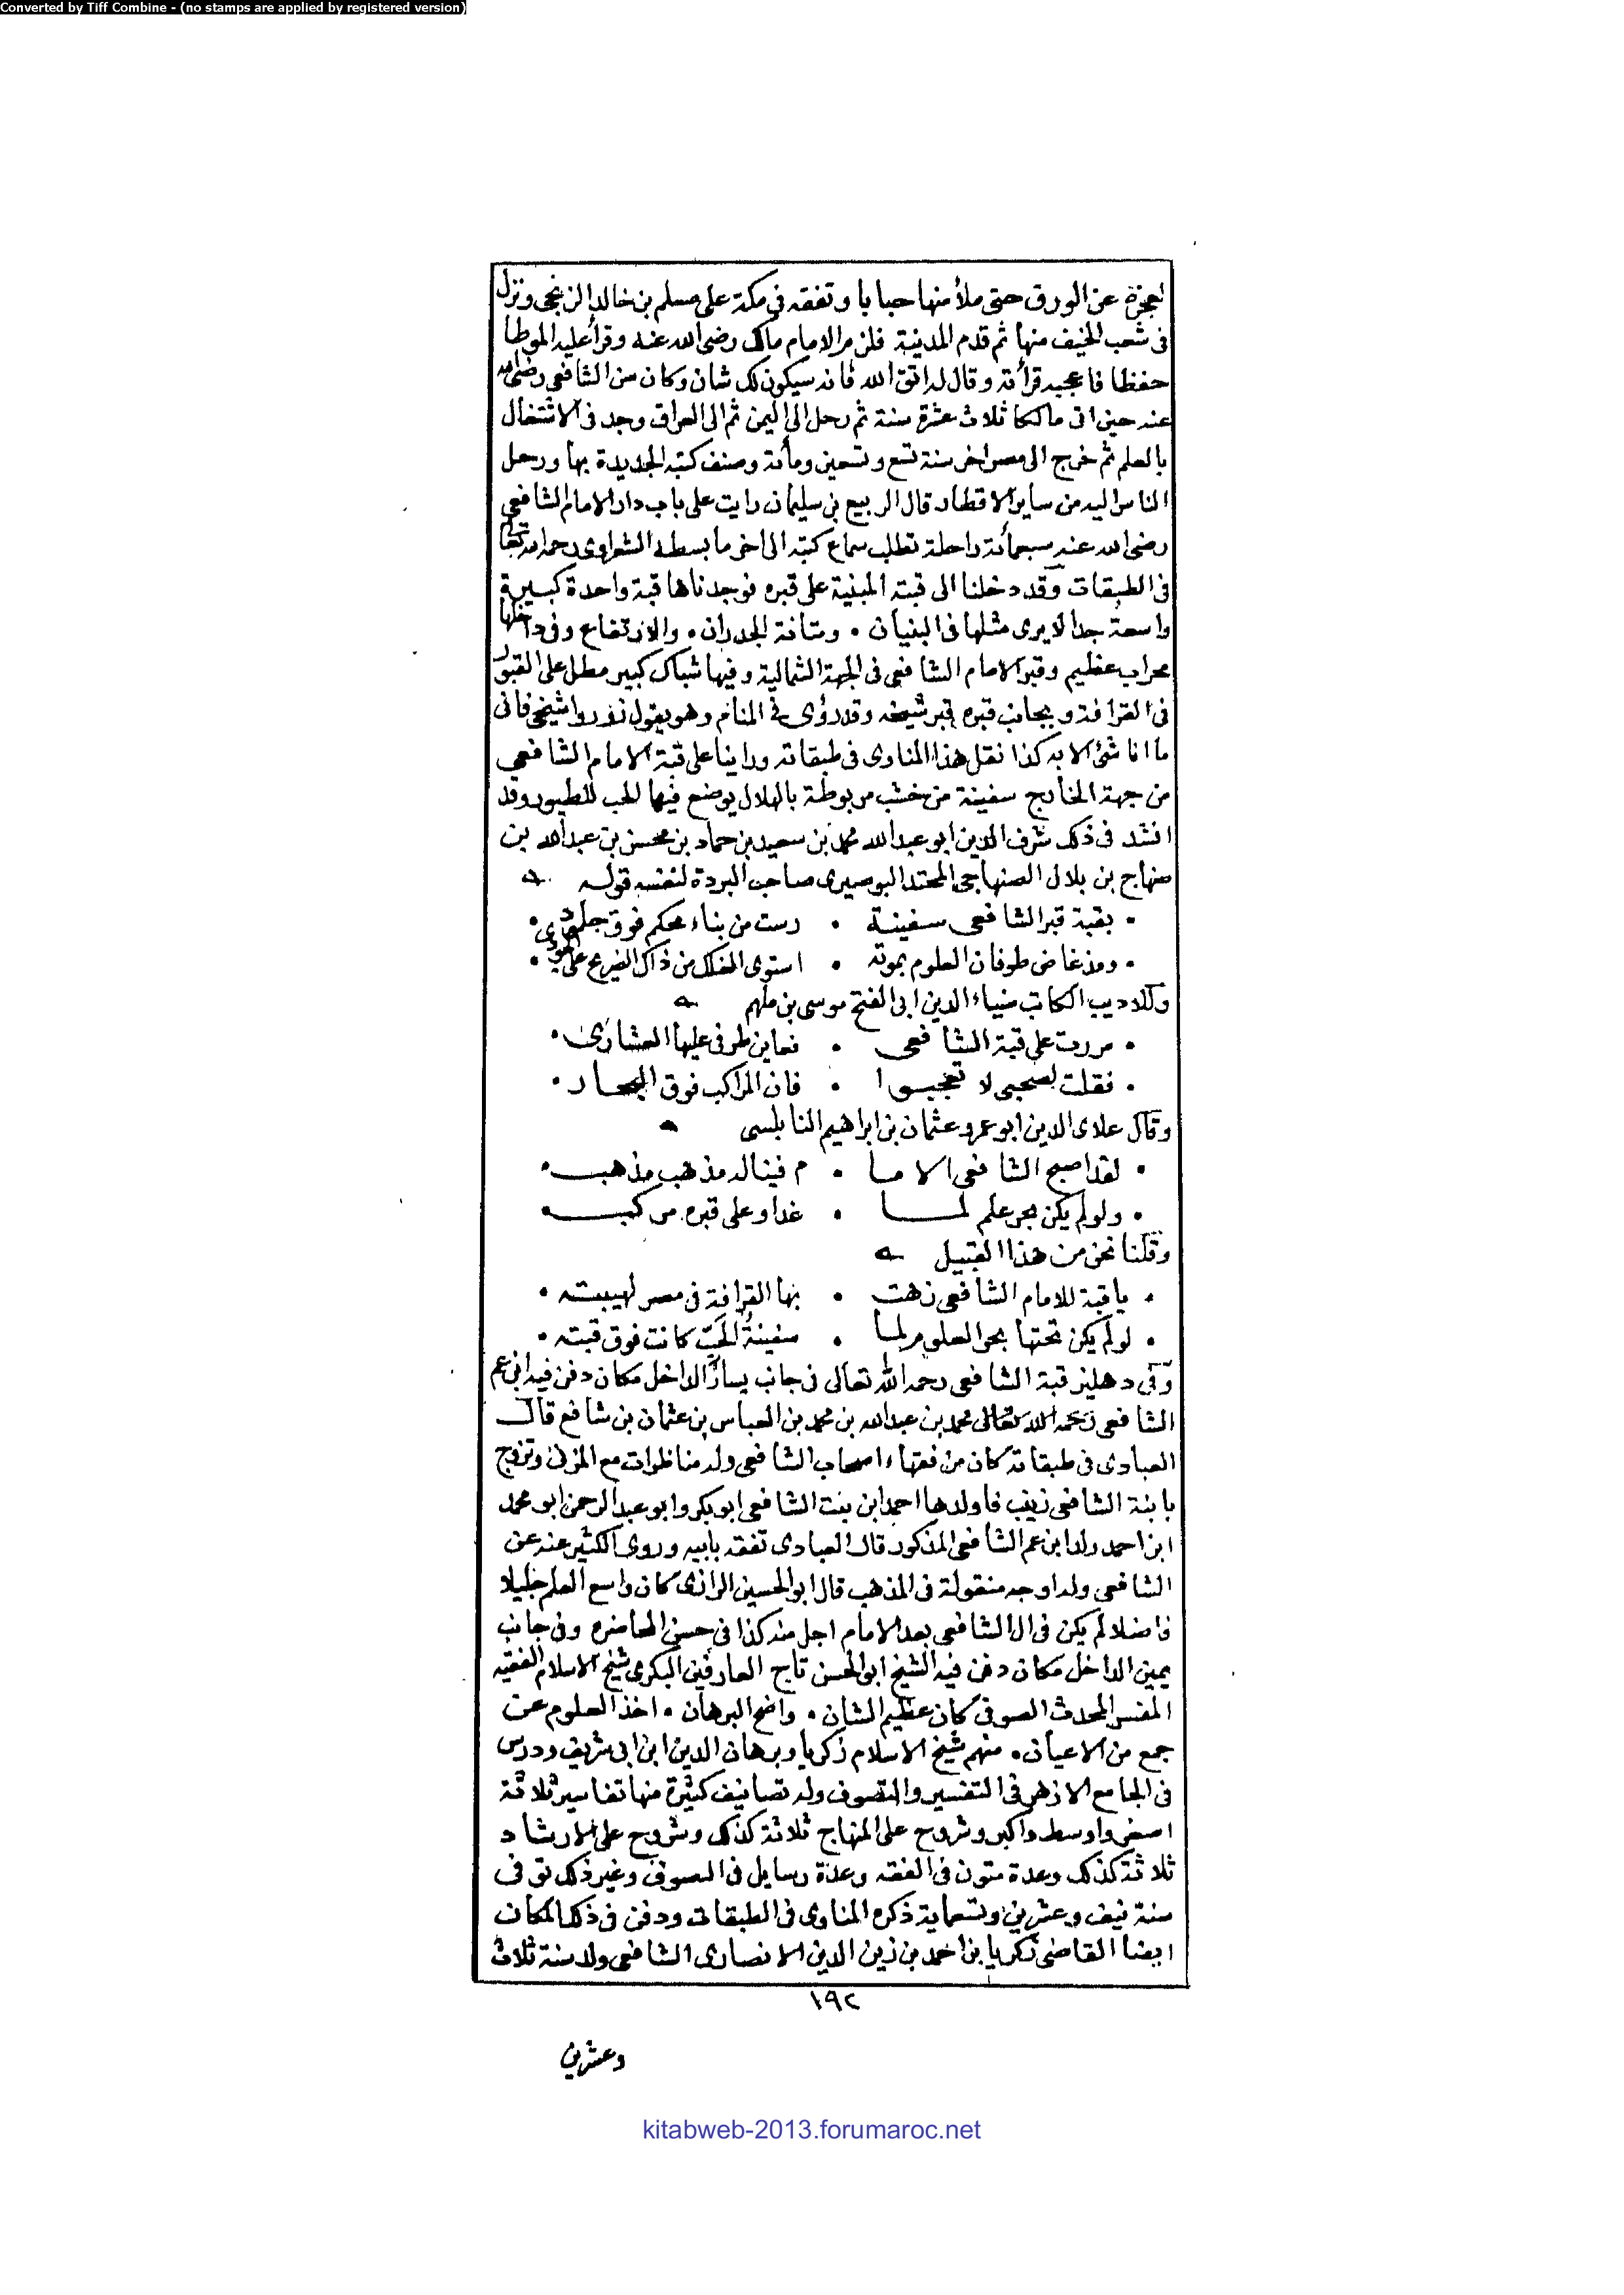 Converted by Tiff Combine - (no stamps are applied by registered version)
لعجزة عن الورق حتى ملأ منها حبابا وتفقه فى مكة على مسلم بن خالد الزنجى ونزل
فى شعب الخيف منها ثم قدم المدينة فلزم الامام مالك رضى الله عنه وقرأ عليه الموطا
حفظا فاعجبه قرأته وقال له اتق الله فانه سيكون لك شان وكان سن الشافعى رضى الله
عنه حين اتى مالكا ثلاث عشرة سنة ثم رحل الى اليمن ثم الى العراق وجد فى الاشتغال
بالعلم ثم خرج الى مصر اخر سنة تسع وتسعين ومأئة وصنف كتبه الجديدة بها ورحل
الناس اليه من ساير الاقطار قال الربيع بن سليمان رايت على باب دار الامام الشافعى
رضى الله عنه سبعمائة راحلة تطلب سماع كتبه الى اخر ما بسطه الشعراوى رحمه الله تعالى
فى الطبقات وقد دخلنا الى قبته المبنية على قبره فوجدناها قبة واحدة كبيرة
واسعة جدا لا يرى مثلها فى البنيان • ومتانة الجدران • والارتفاع وفى داخلها
محراب عظيم وقبر الامام الشافعى فى الجهة الشمالية وفيها شباك كبير مطل على القبور
فى القرافة وبجانب قبره قبر شيخه وقد رؤى فى المنام وهو يقول زوروا شيخى فانى
ما انا شئ الا به كذا نقل هذا المناوى فى طبقاته وراينا على قبة الامام الشافعى
من جهة الخارج سفينة من خشب مربوطة بالهلال يوضع فيها الحب للطيور وقد
انشد فى ذلك شرف الدين ابو عبد الله محمد بن سعيد بن حماد بن محسن بن عبد الله بن
صنهاج بن بلال الصنهاجى المحتد البوصيرى صاحب البردة لنفسه قوله
• بقبة قبر الشافعى سفينة • رست من بناء محكم فوق جلمود •
• ومذ غاض طوفان العلوم بموته • استوى الفلك من ذاك الضريح على الجودى •
وللاديب الكاتب ضياء الدين ابى الفتح موسى بن ملهم
• مررت على قبة الشافعى • فعاين طرفى عليها العشارى •
• فقلت لصحبى لا تعجبوا • فان المراكب فوق البحار •
وقال علاى الدين ابو عمرو عثمان بن ابراهيم النابلسى
• لقد اصبح الشافعى الاما • م فينا له مذهب مذهب •
• ولو لم يكن بحر علم لما • غدا وعلى قبره مركب •
وقلنا نحن من هذا القبيل
• يا قبة للامام الشافعى زهت • بها القرافة فى مصر لهيبته •
• لو لم يكن تحتها بحر العلوم لما • سفينة الحَبّ كانت فوق قبته •
وفى دهليز قبة الشافعى رحمه الله تعالى فى جانب يسار الداخل مكان دفن فيه ابن عم
الشافعى رحمه الله تعالى محمد بن عبد الله بن محمد بن العباس بن عثمان بن شافع قال
العبادى فى طبقاته كان من فقهاء اصحاب الشافعى وله مناظرات مع المزنى وتزوج
بابنة الشافعى زينب فاولدها احمد ابن بنت الشافعى ابو بكر وابو عبد الرحمن ابو محمد
ابن احمد ولد ابن عم الشافعى المذكور قال العبادى تفقه بابيه وروى الكثير عنه عن
الشافعى وله اوجه منقولة فى المذهب قال ابو الحسين الرازى كان واسع العلم جليلا
فاضلا لم يكن فى ال الشافعى بعد الامام اجل منه كذا فى حسن المحاضره وفى جانب
يمين الداخل مكان دفن فيه الشيخ ابو الحسن تاج العارفين البكرى شيخ الاسلام الفقيه
المفسر المحدث الصوفى كان عظيم الشان • واضح البرهان • اخذ العلوم عن
جمع من الاعيان • منهم شيخ الاسلام زكريا وبرهان الدين ابن ابى شريف ودرس
فى الجامع الازهر فى التفسير والتصوف وله تصانيف كثيرة منها تفاسير ثلاثة
اصغر واوسط واكبر وشروح على المنهاج ثلاثة كذلك وشروح على الارشاد
ثلاثة كذلك وعدة متون فى الفقه وعدة رسايل فى التصوف وغير ذلك توفى
سنة نيف وعشرين وتسعماية ذكره المناوى فى الطبقات ودفن فى ذلك المكان
ايضا القاضى زكريا بن احمد بن زين الدين الانصارى الشافعى ولد سنة ثلاث
١٩٢
وعشرين
kitabweb-2013.forumaroc.net